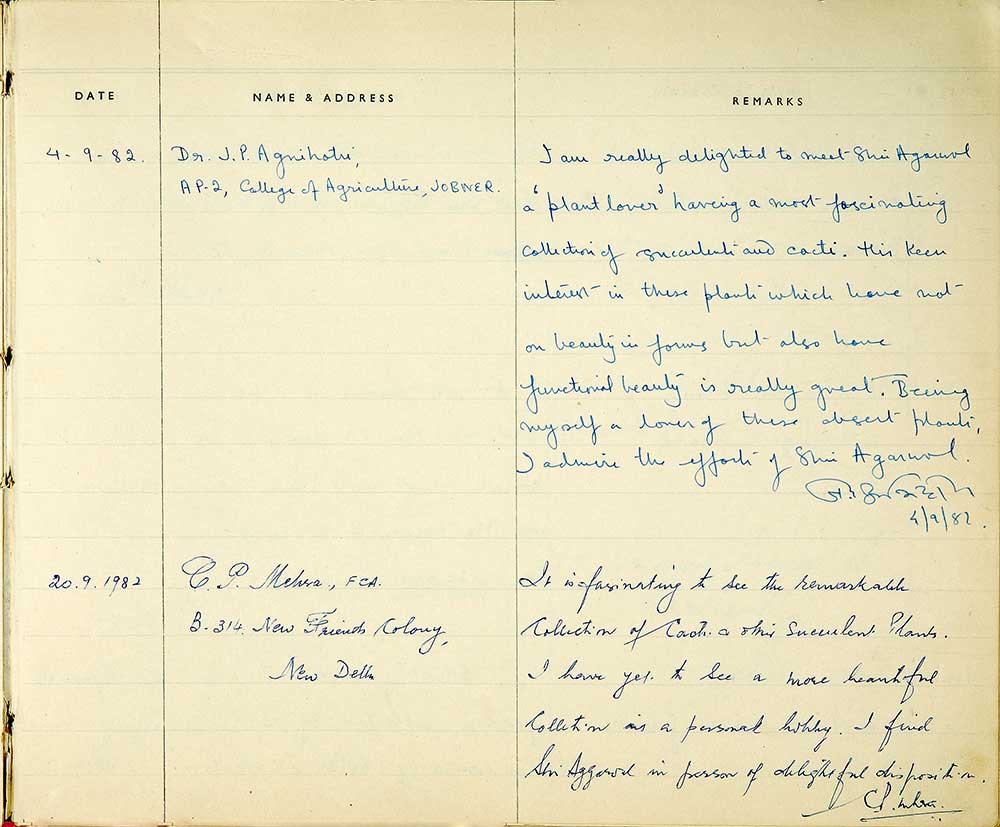 DATE
NAME & ADDRESS
REMARKS
4-9-82.
Dr. J.P. Agnihotri,
AP-2, College of Agriculture, JOBNER.
I am really delighted to meet Shri Agarwal
a 'plant lover' having a most fascinating
collection of succulents and cacti. His keen
interest in these plants which have not
on beauty in forms but also have
functional beauty is really great. Beeing
myself a lover of these desert plants,
I admire the efforts of Shri Agarwal.
4/9/82.
20.9.1982
C. P. Mehra, FCA.
B-314, New Friends Colony,
New Delhi
It is fasinating to see the remarkable
Collection of Cacti & other Succulent Plants.
I have yet to see a more beautiful
Collection as a personal hobby. I find
Shri Aggarwal in person of delightful disposition.
C.P. Mehra.